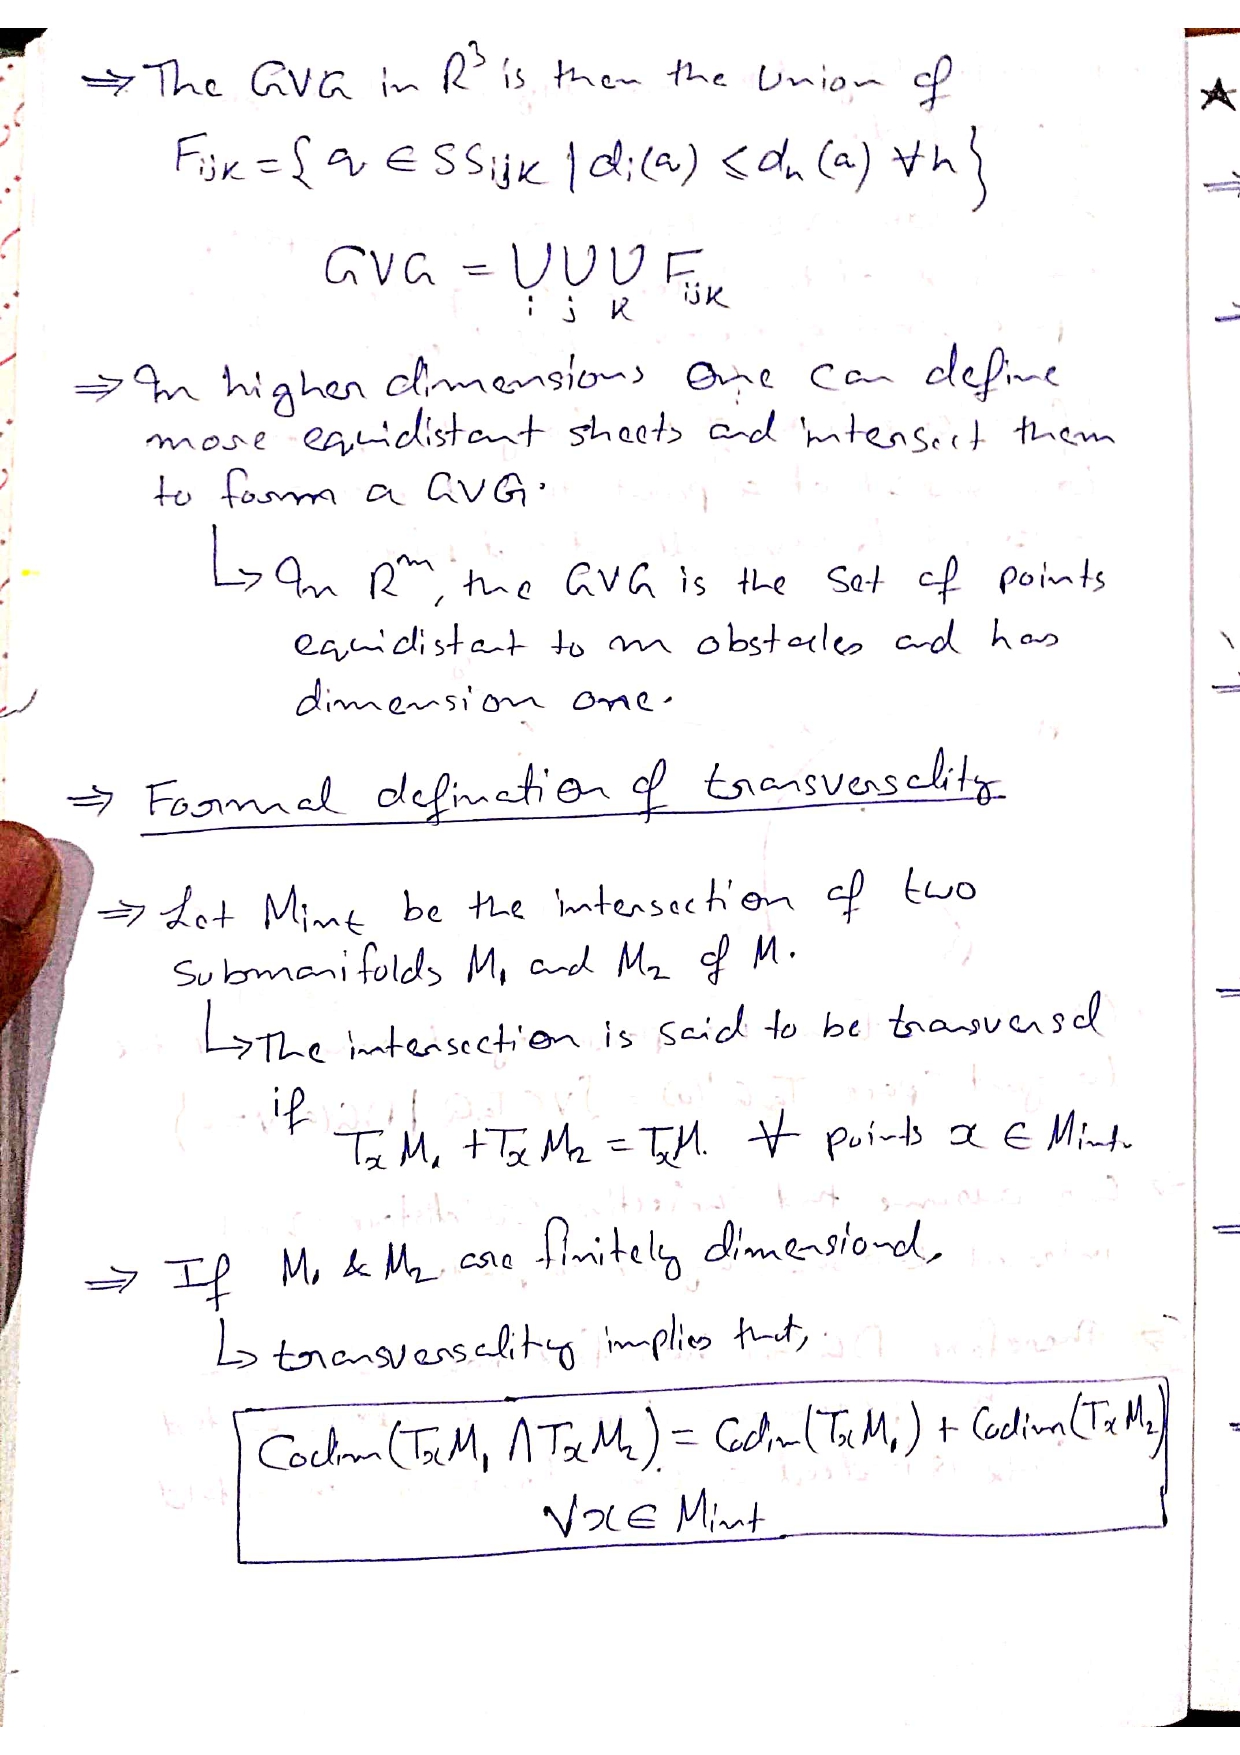 ⇒ The GVG in R³ is then the Union of
Fijk = { q ∈ SSijk | di(q) ≤ dh(q) ∀h }
GVG = ⋃⋃⋃ Fijk
i j k
⇒ In higher dimensions one can define
more equidistant sheets and intersect them
to form a GVG.
↳ In Rᵐ, the GVG is the set of points
equidistant to m obstacles and has
dimension one.
⇒ Formal defination of transversality
⇒ Let Mint be the intersection of two
submanifolds M₁ and M₂ of M.
↳ The intersection is said to be transversal
if
TₓM₁ + TₓM₂ = TₓM. ∀ points x ∈ Mint.
⇒ If M₁ & M₂ are finitely dimensional,
↳ transversality implies that,
Codim(TₓM₁ ∩ TₓM₂) = Codim(TₓM₁) + Codim(TₓM₂)
∀x ∈ Mint